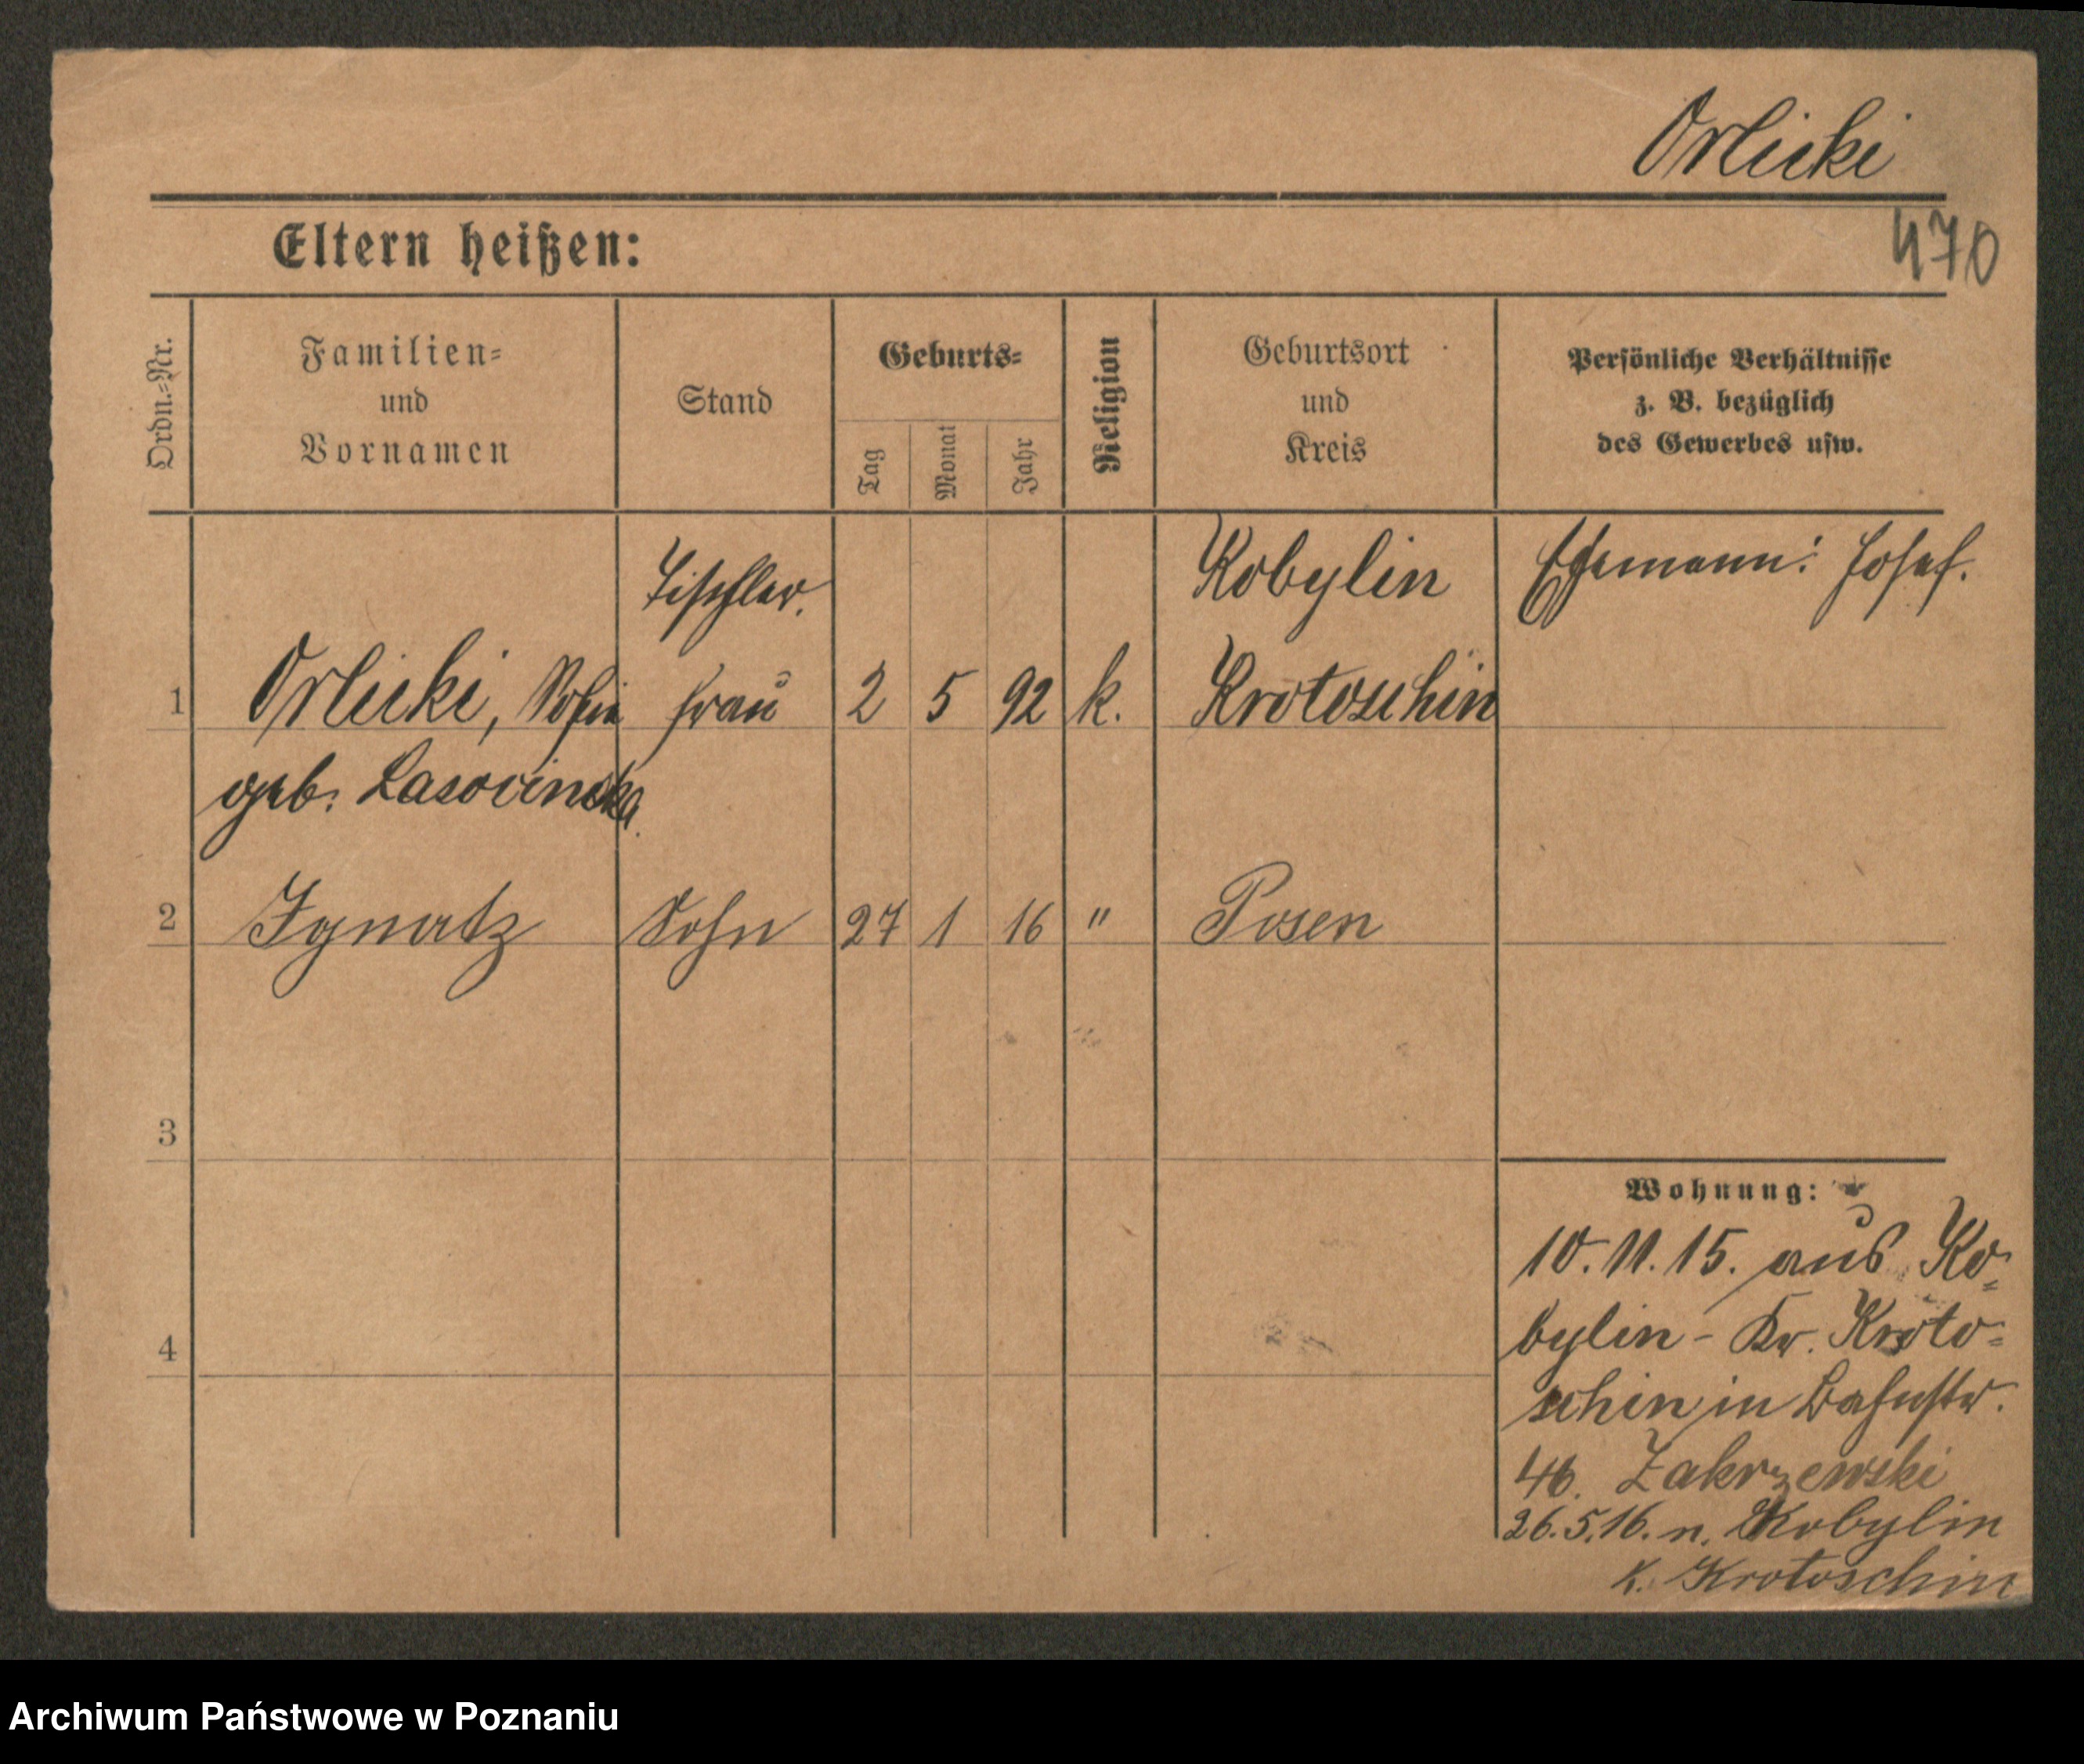 Orlicki
470
Eltern heißen:
Ordn.-Nr.
Familien-
und
Vornamen
Stand
Geburts-
Tag
Monat
Jahr
Religion
Geburtsort
und
Kreis
Persönliche Verhältnisse
z. B. bezüglich
des Gewerbes usw.
Tischler.
Kobylin
Ehemann: Josef.
1 Orlicki, Sofia frau 2 5 92 k. Krotoschin
geb. Lasocinska.
2 Ignatz Sohn 27 1 16 " Posen
3
4
Wohnung:
10.11.15. aus Ko-
bylin - Kr. Kroto-
schin in Bahnstr.
46. Zakrzewski
26.5.16. n. Kobylin
K. Krotoschin
Archiwum Państwowe w Poznaniu